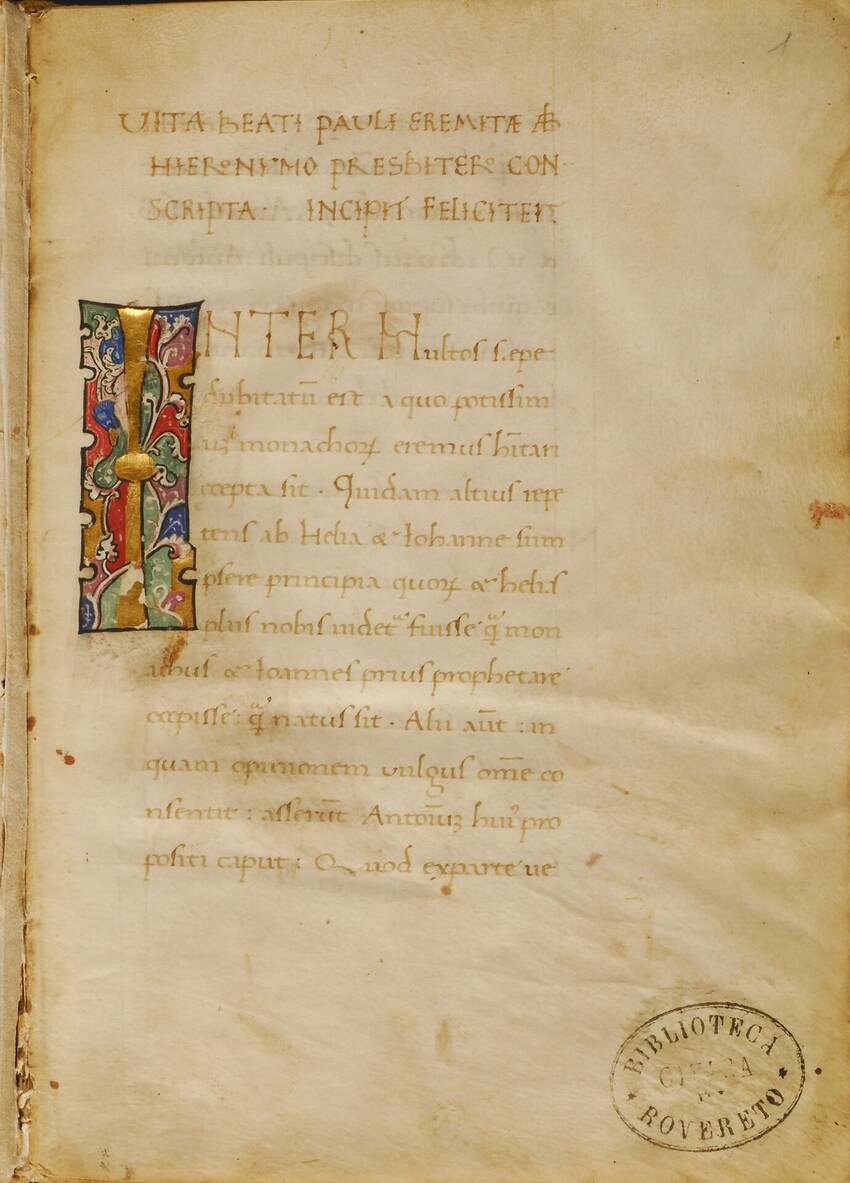 1
VITA BEATI PAULI EREMITÆ AB
HIERONYMO PRESBITERO CON
SCRIPTA · INCIPIT FELICITER.
INTER Multos sępe
dubitatū est a quo potissim
uꝫ monachoꝝ eremus hītari
cœpta sit · Quidam altius repe
tens ab Helia & Iohanne sum
psere principia quoꝝ & helias
plus nobis uidet fuisse q̄ mon
achus & Ioannes prius prophetare
cœpisse : q̄ natus sit · Alii aūt : in
quam opinionem uulgus om̄e co
nsentit : asserūt Antoīuꝫ hui᾽ pro
positi caput : Quod ex parte ue
BIBLIOTECA
CIVICA
ROVERETO